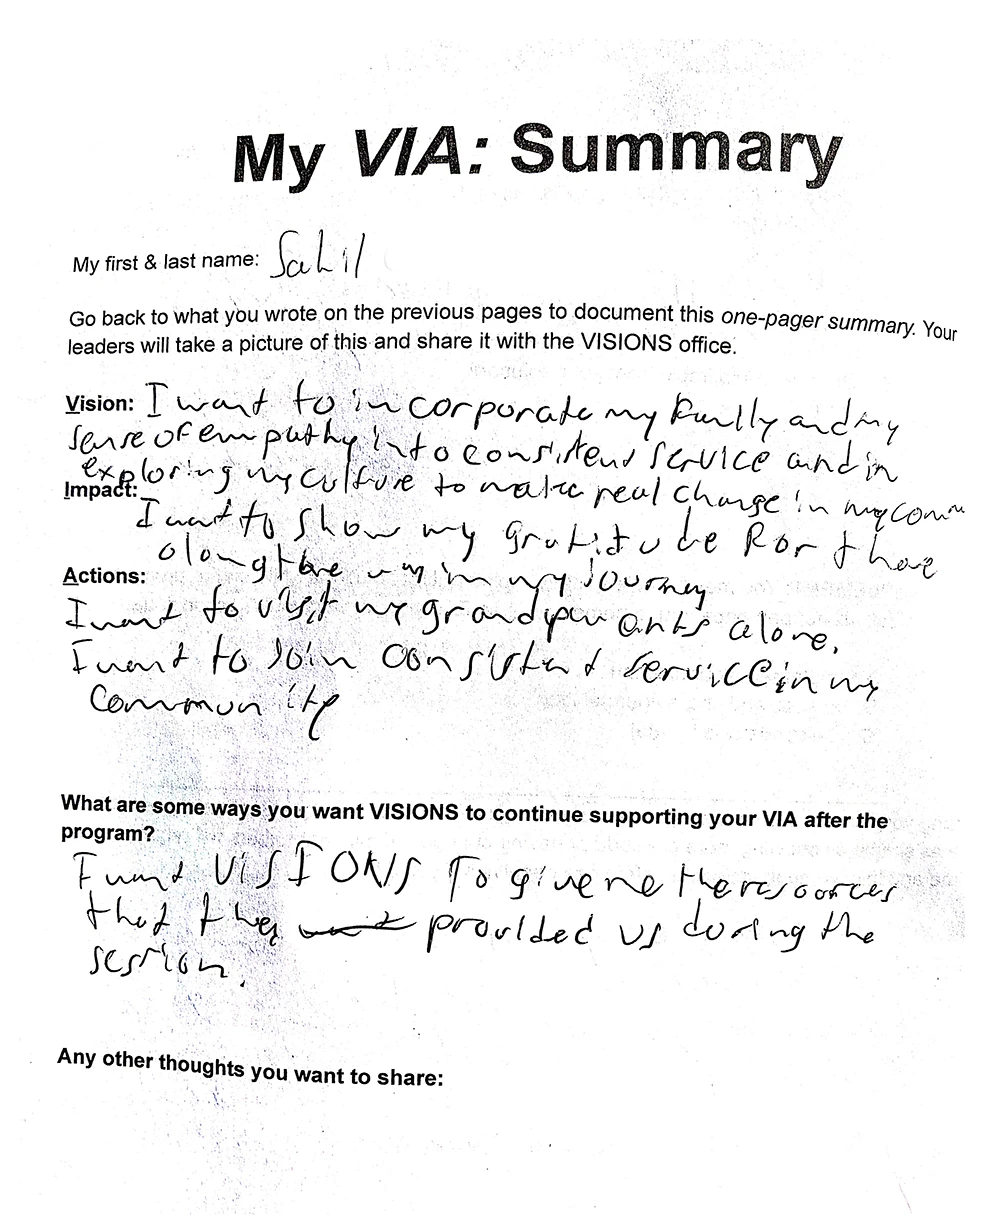 My VIA: Summary
My first & last name: Sahil
Go back to what you wrote on the previous pages to document this one-pager summary. Your
leaders will take a picture of this and share it with the VISIONS office.
Vision: I want to incorporate my family and my
sense of empathy into consistent service and in
exploring my culture to make real change in my comm
Impact:
I want to show my gratitude for those
along the way in my journey
Actions:
I want to visit my grandparents alone.
I want to join consistent service in my
community
What are some ways you want VISIONS to continue supporting your VIA after the
program?
I want VISIONS To give me the resources
that they provided us during the
session.
Any other thoughts you want to share: